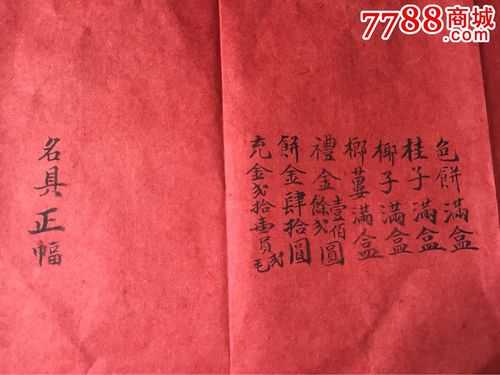 7788商城
色餅滿盒
桂子滿盒
椰子滿盒
榔蔞滿盒
禮金壹佰餘弍圓
餅金肆拾圓
充金弍拾壹員弍毛
名具正幅